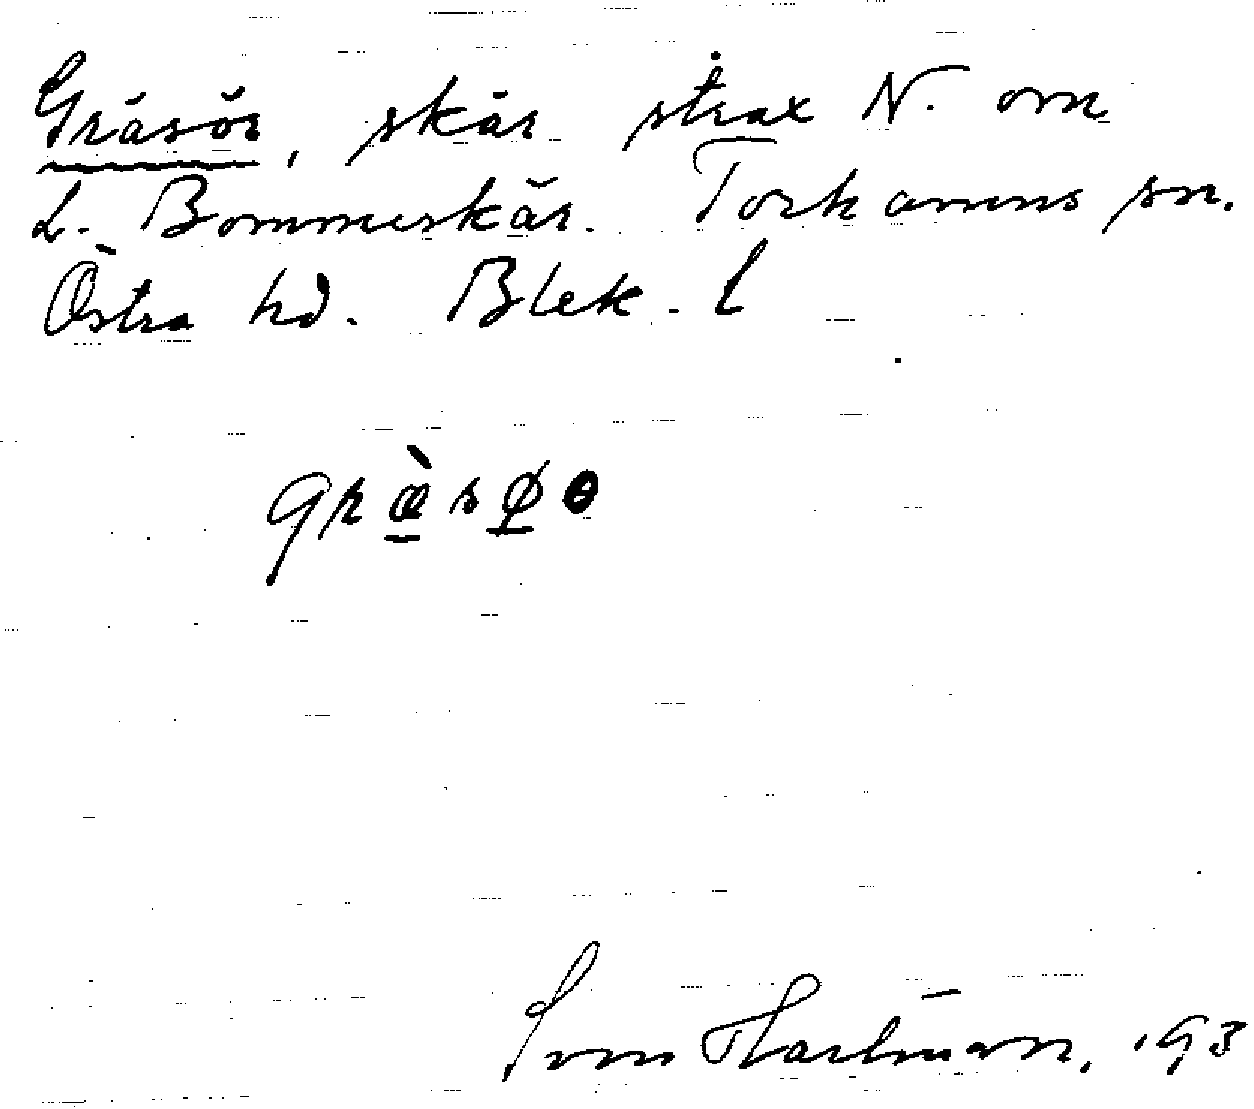 Gräsör, skär strax N. om
L. Bommerskär. Torhamns sn.
Östra hd. Blek. l
græ̀sø
Sven Hartman. 193